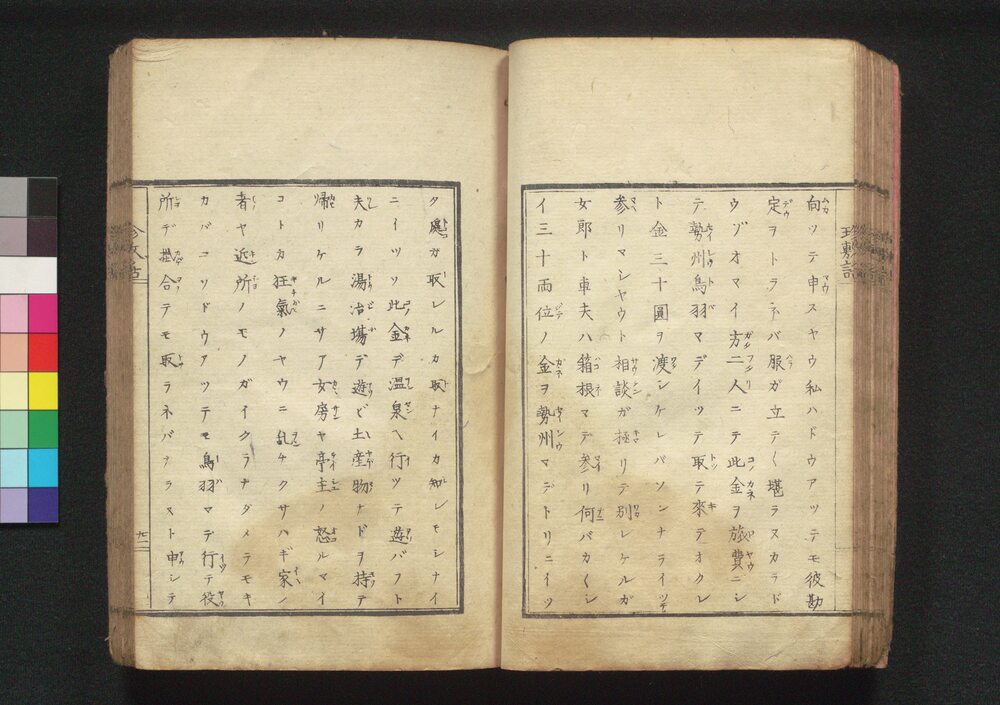 向ツテ申スヤウ私ハドウアツテモ彼勘
定ヲトラネバ服ガ立テく堪ラヌカラド
ウゾオマイ方二人ニテ此金ヲ旅費ニシ
テ勢州鳥羽マデイツテ取テ來テオクレ
ト金三十圓ヲ渡シケレバソンナライツテ
参リマシヤウト相談ガ極リテ別レケルガ
女郎ト車夫ハ箱根マデ参リ何バカくシ
イ三十両位ノ金ヲ勢州マデトリニイツ
タ處ガ取レルカ取ナイカ知レモシナイ
ニイツソ此金デ温泉ヘ行ツテ遊バフト
夫カラ湯治場デ遊ビ土産物ナドヲ持テ
帰リケルニサア女房ヤ亭主ノ怒ルマイ
コトカ狂氣ノヤウニ乱チクサハギ家ノ
者ヤ近所ノモノガイクラナダメテモキ
カバコソドウアツテモ鳥羽マデ行テ役
所デ掛合テモ取ラネバナラヌト申シテ